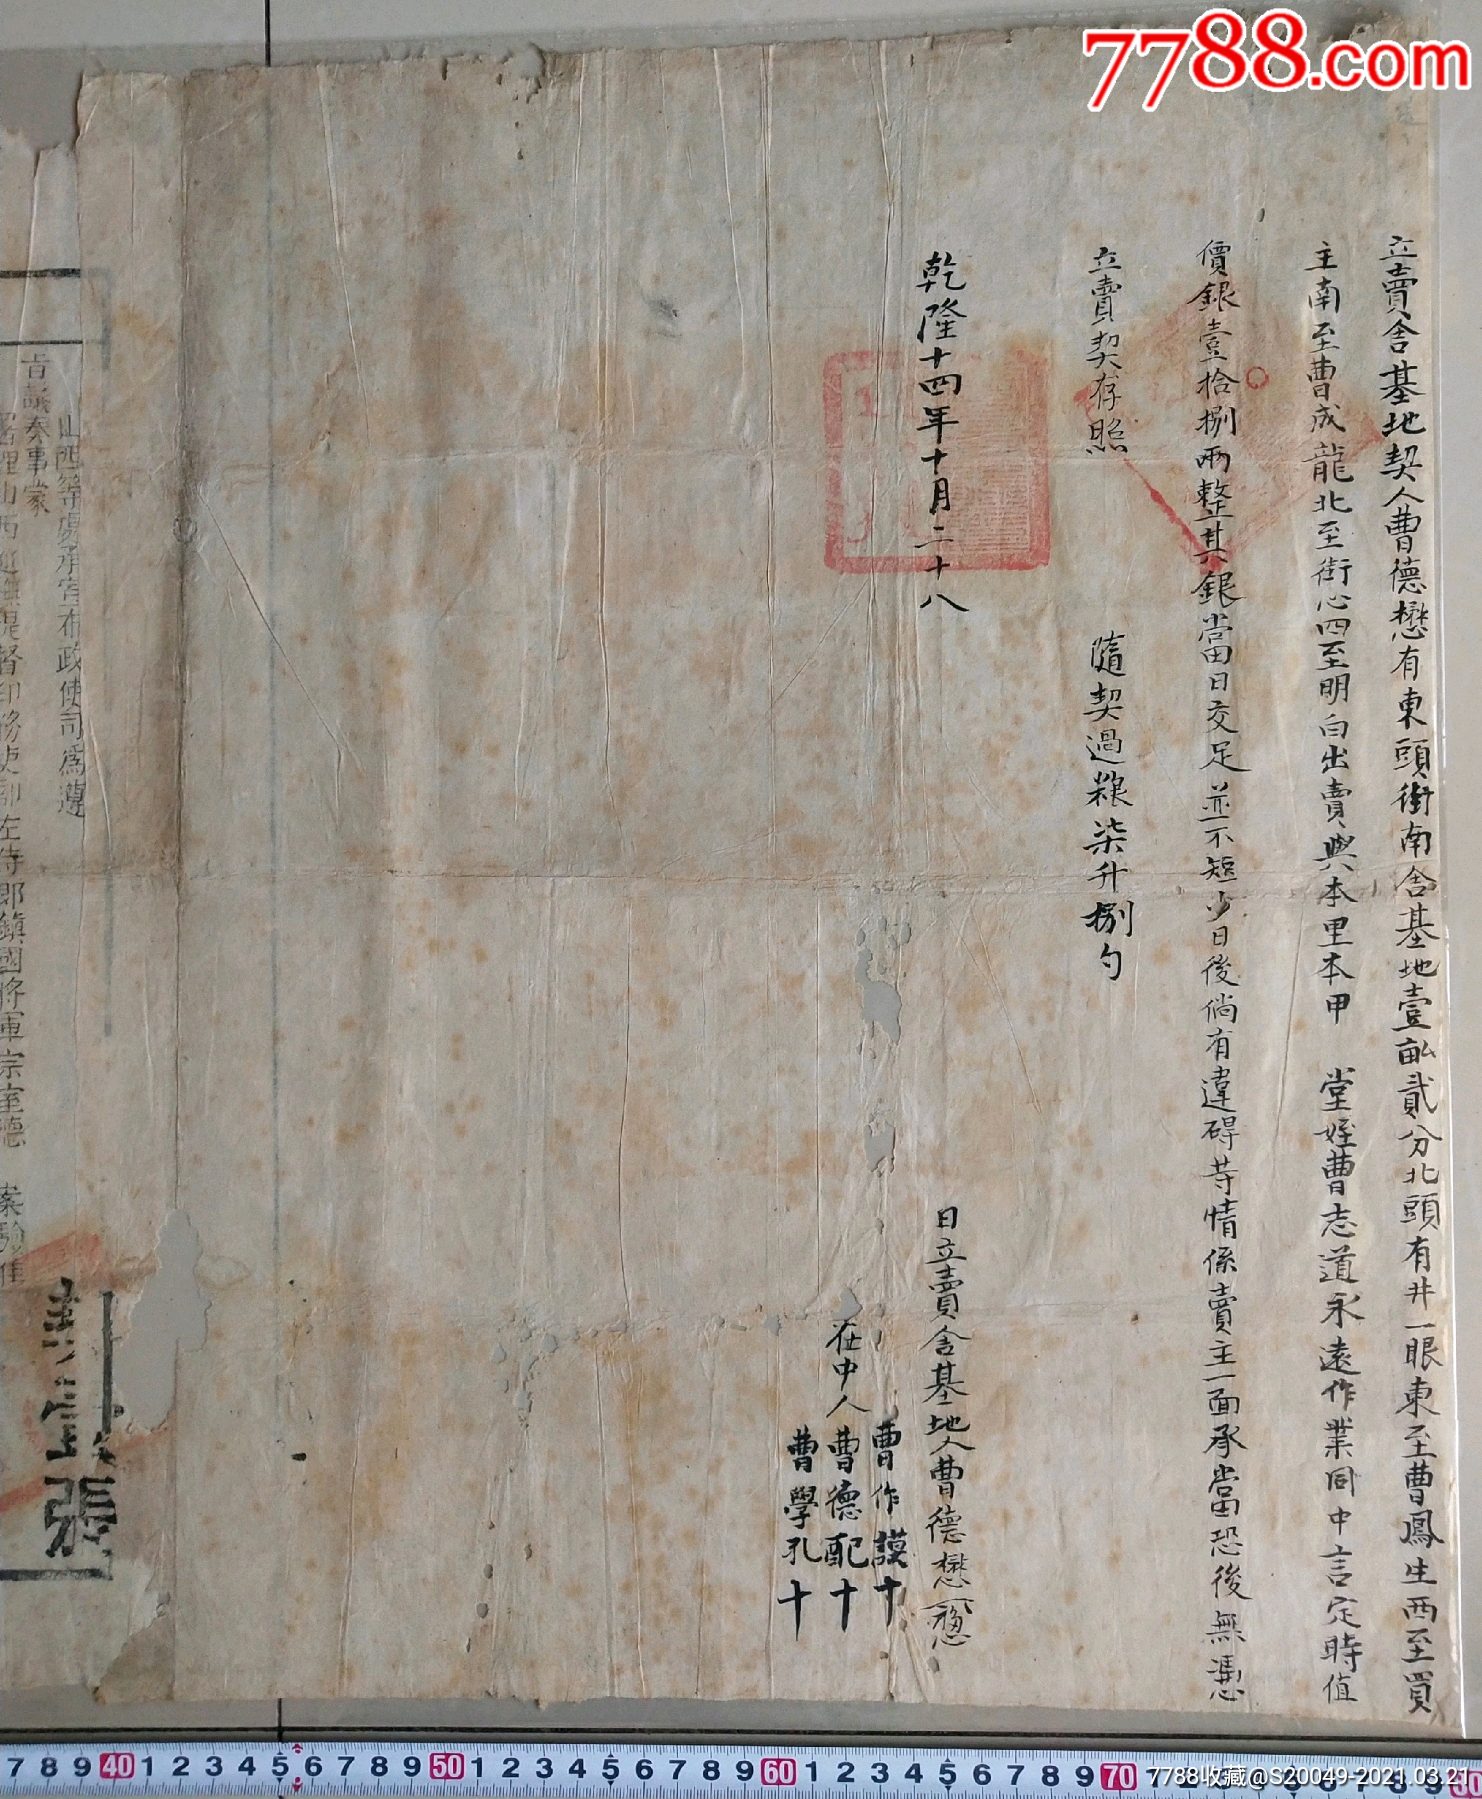 7788.com
立賣舍基地契人曹德懋有東頭街南舍基地壹畝貳分北頭有井一眼東至曹鳳生西至買
主南至曹成龍北至街心四至明白出賣與本里本甲 堂姪曹志道永遠作業同中言定時值
價銀壹拾捌兩整其銀當日交足並不短少日後倘有違碍等情係賣主一面承當恐後無憑
立賣契存照 隨契過粮柒升捌勺
乾隆十四年十月二十八 日立賣舍基地人曹德懋
曹作謨十
在中人曹德配十
曹學孔十
山西等處承宣布政使司為遵
旨議奏事蒙
理山西巡撫提督印務吏部左侍郎鎮國將軍宗室德 案驗准
7 8 9 40 1 2 3 4 5 6 7 8 9 50 1 2 3 4 5 6 7 8 9 60 1 2 3 4 5 6 7 8 9 70
7788收藏@S20049-2021.03.21